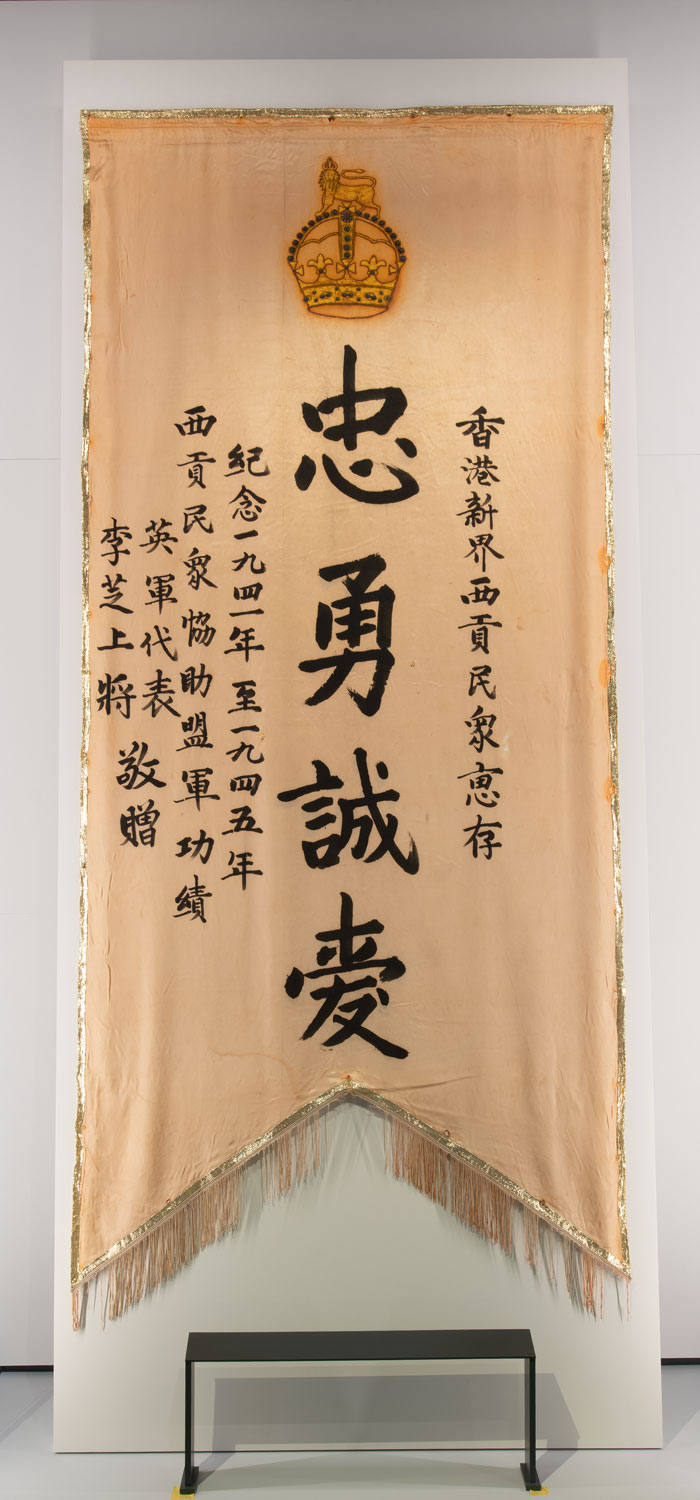 香港新界西貢民衆惠存
忠勇誠愛
紀念一九四一年至一九四五年
西貢民衆協助盟軍功績
英軍代表
李芝上將
敬贈